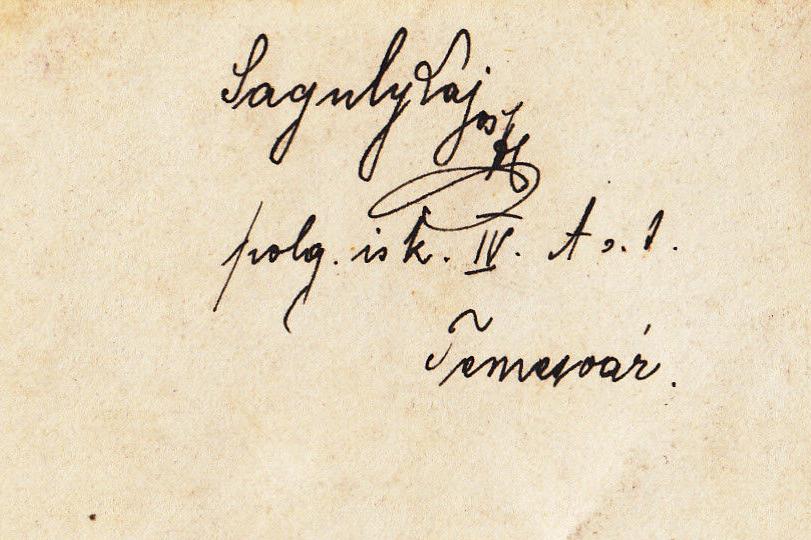 Saguly Lajos
polg. isk. IV. A o. t.
Temesvár.